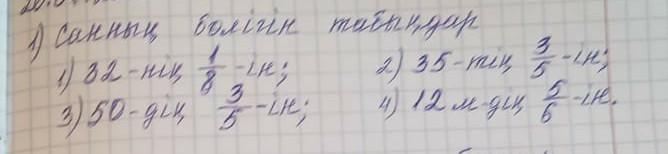 1) Санның бөлігін табыңдар
1) 32-нің 1/8-ін; 2) 35-тің 3/5-ін;
3) 50-дің 3/5-ін; 4) 12 м-дің 5/6-ін.